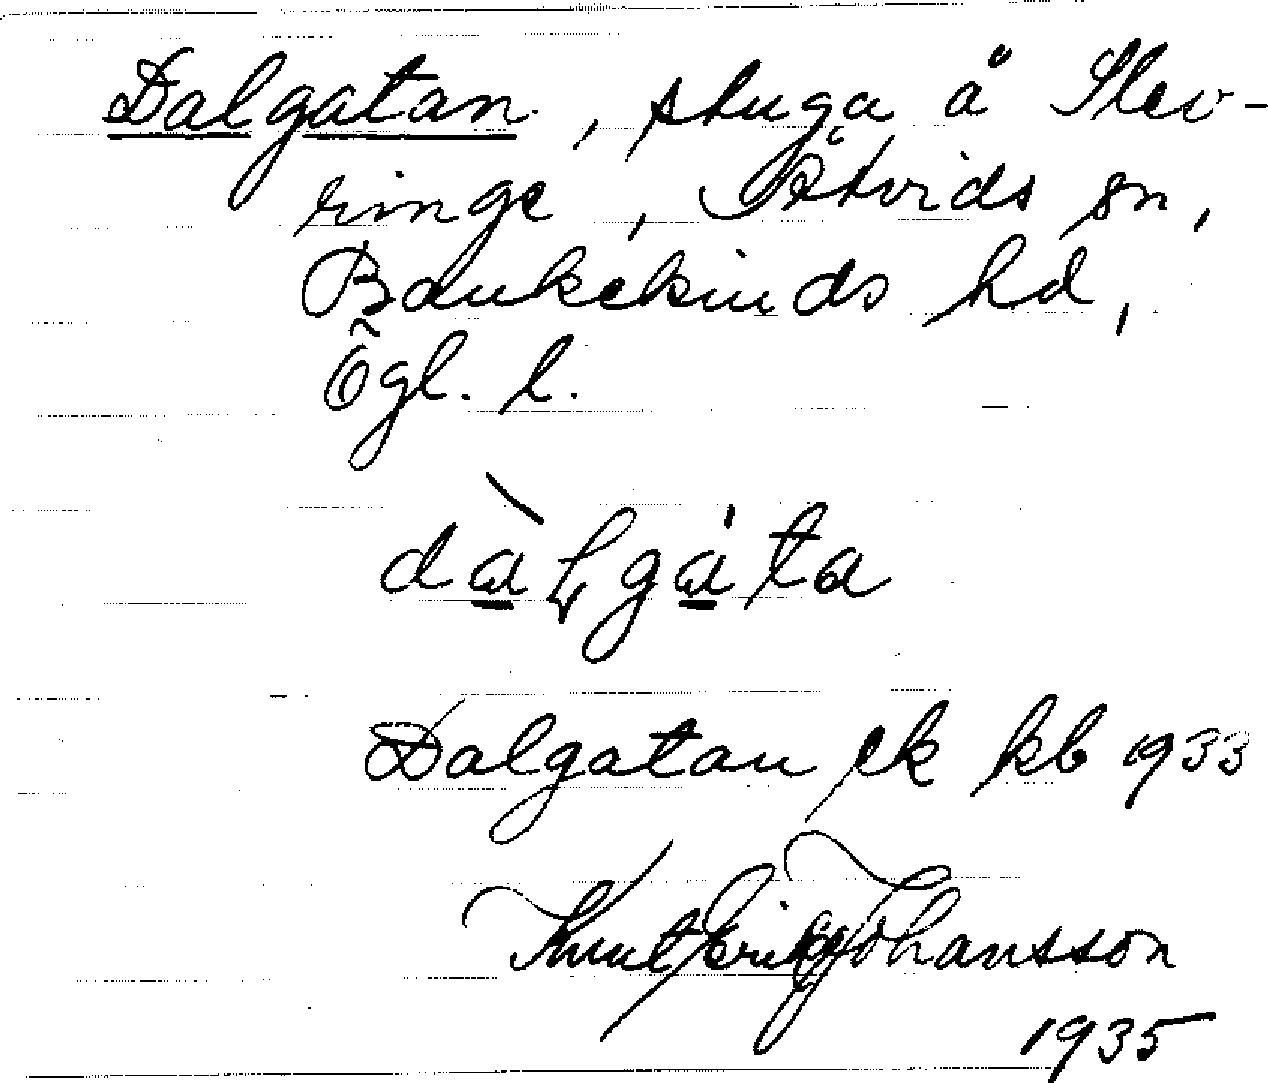 Dalgatan, stuga å Slev-
ringe, Åtvids sn,
Bankekinds hd,
Ögl. l.
dàɭgáta
Dalgatan ek kb 1933
Knut Erik Johansson
1935